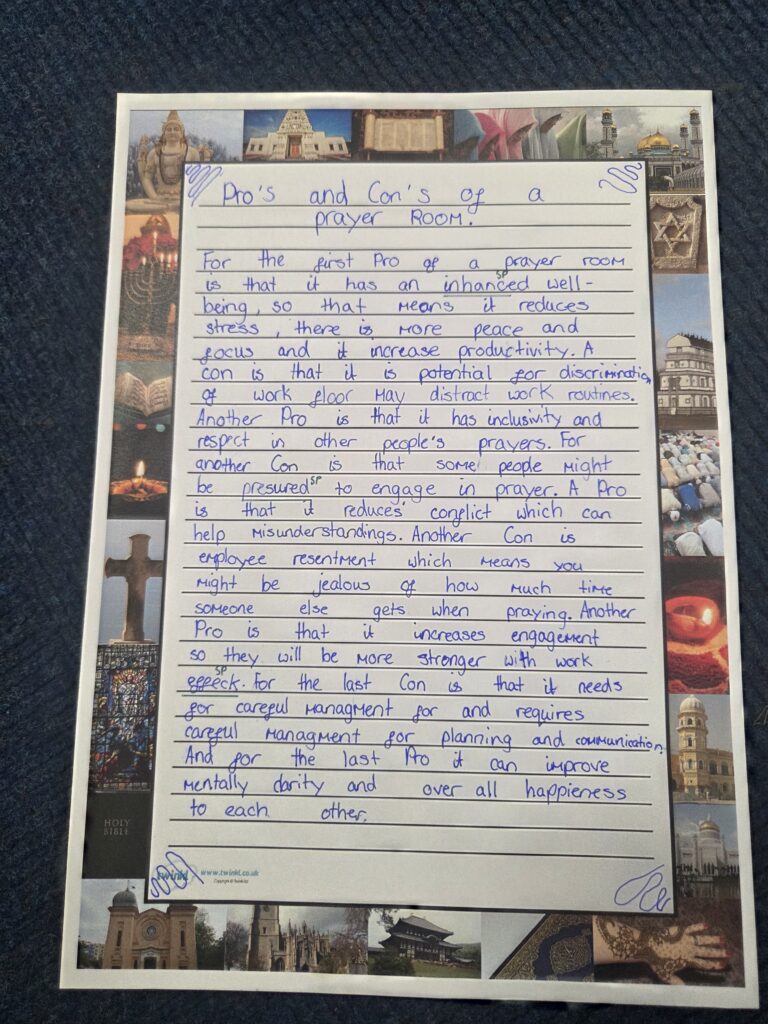 Pro's and Con's of a
prayer ROOM.
For the first Pro of a prayer room
SP
is that it has an inhanced well-
being, so that means it reduces
stress, there is more peace and
focus and it increase productivity. A
con is that it is potential for discrimination
of work floor may distract work routines.
Another Pro is that it has inclusivity and
respect in other people's prayers. For
another Con is that some people might
be presured SP to engage in prayer. A Pro
is that it reduces conflict which can
help misunderstandings. Another Con is
employee resentment which means you
might be jealous of how much time
someone else gets when praying. Another
Pro is that it increases engagement
so they will be more stronger with work
SP
effeck. For the last Con is that it needs
for careful managment for and requires
careful managment for planning and communication.
And for the last Pro it can improve
mentally clarity and over all happieness
to each other.
twinkl www.twinkl.co.uk
HOLY
BIBLE